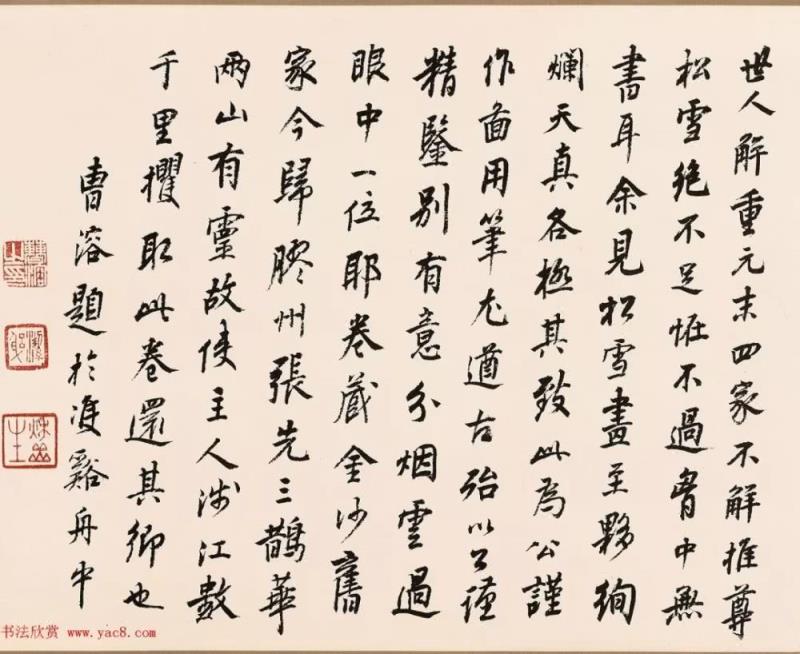 世人解重元末四家不解推尊
松雪絶不足恠不過胷中無
書耳余見松雪畫至夥絢
爛天真各極其致此為公謹
作啚用筆尤遒古殆以公謹
精鑒別有意分烟雲過
眼中一位耶卷藏金沙舊
家今歸膠州張先三鵲華
兩山有靈故使主人涉江數
千里攫取此卷還其鄉也
曹溶題於雙谿舟中
书法欣赏 www.yac8.com